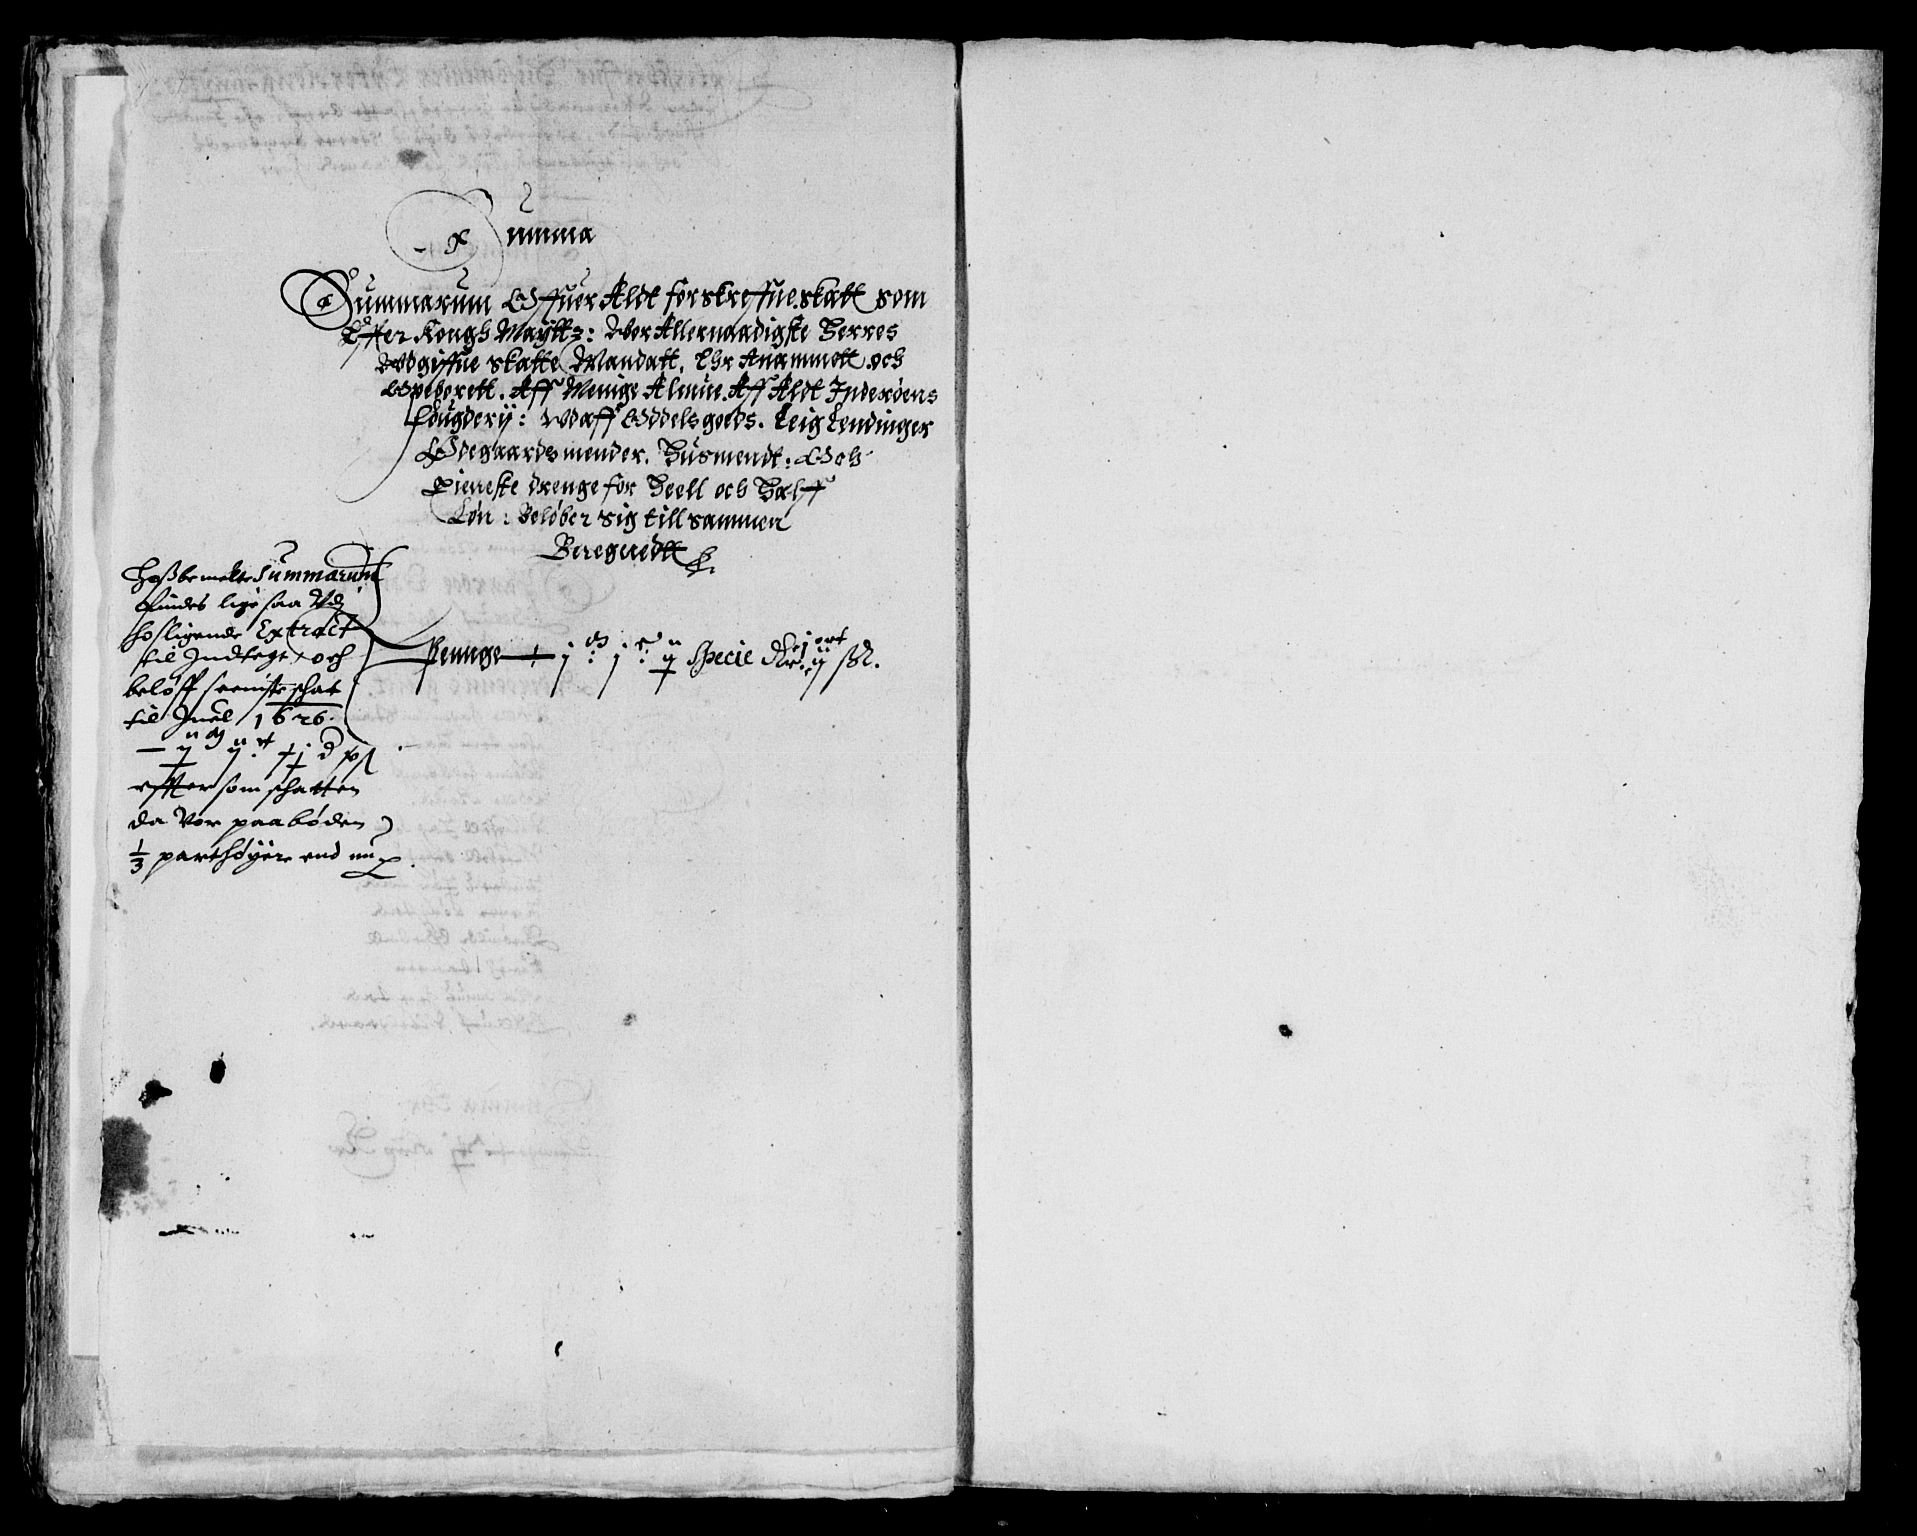 Summa
Summarum Offuer Aldt forskreffue skatt som
Effter Kongh Maÿttz: Wor Allernaadigste Herres
Wdgiffne skatte Mandatt. Ehr Anammett och
Opeborett. Aff Menige Almue. Aff Aldt Inderøens
fougderij: Wdaff Oddelsgotds. Leiglendinger
Ødegaardsmender. Husmendt: Och
Tieneste drenge for Heell och Halff
Løn: Beløber sig till sammen
Beregnedtt
Penge specie dlr j ort ij sk.
Hoßbemelte Summarum
findes lige saa Vdj
hosligende Extract
til Indtegt och
beløff seeniste schat
til Juel 1626.
effter som schatten
da Vor paabøden
1/3 part høyere end nu